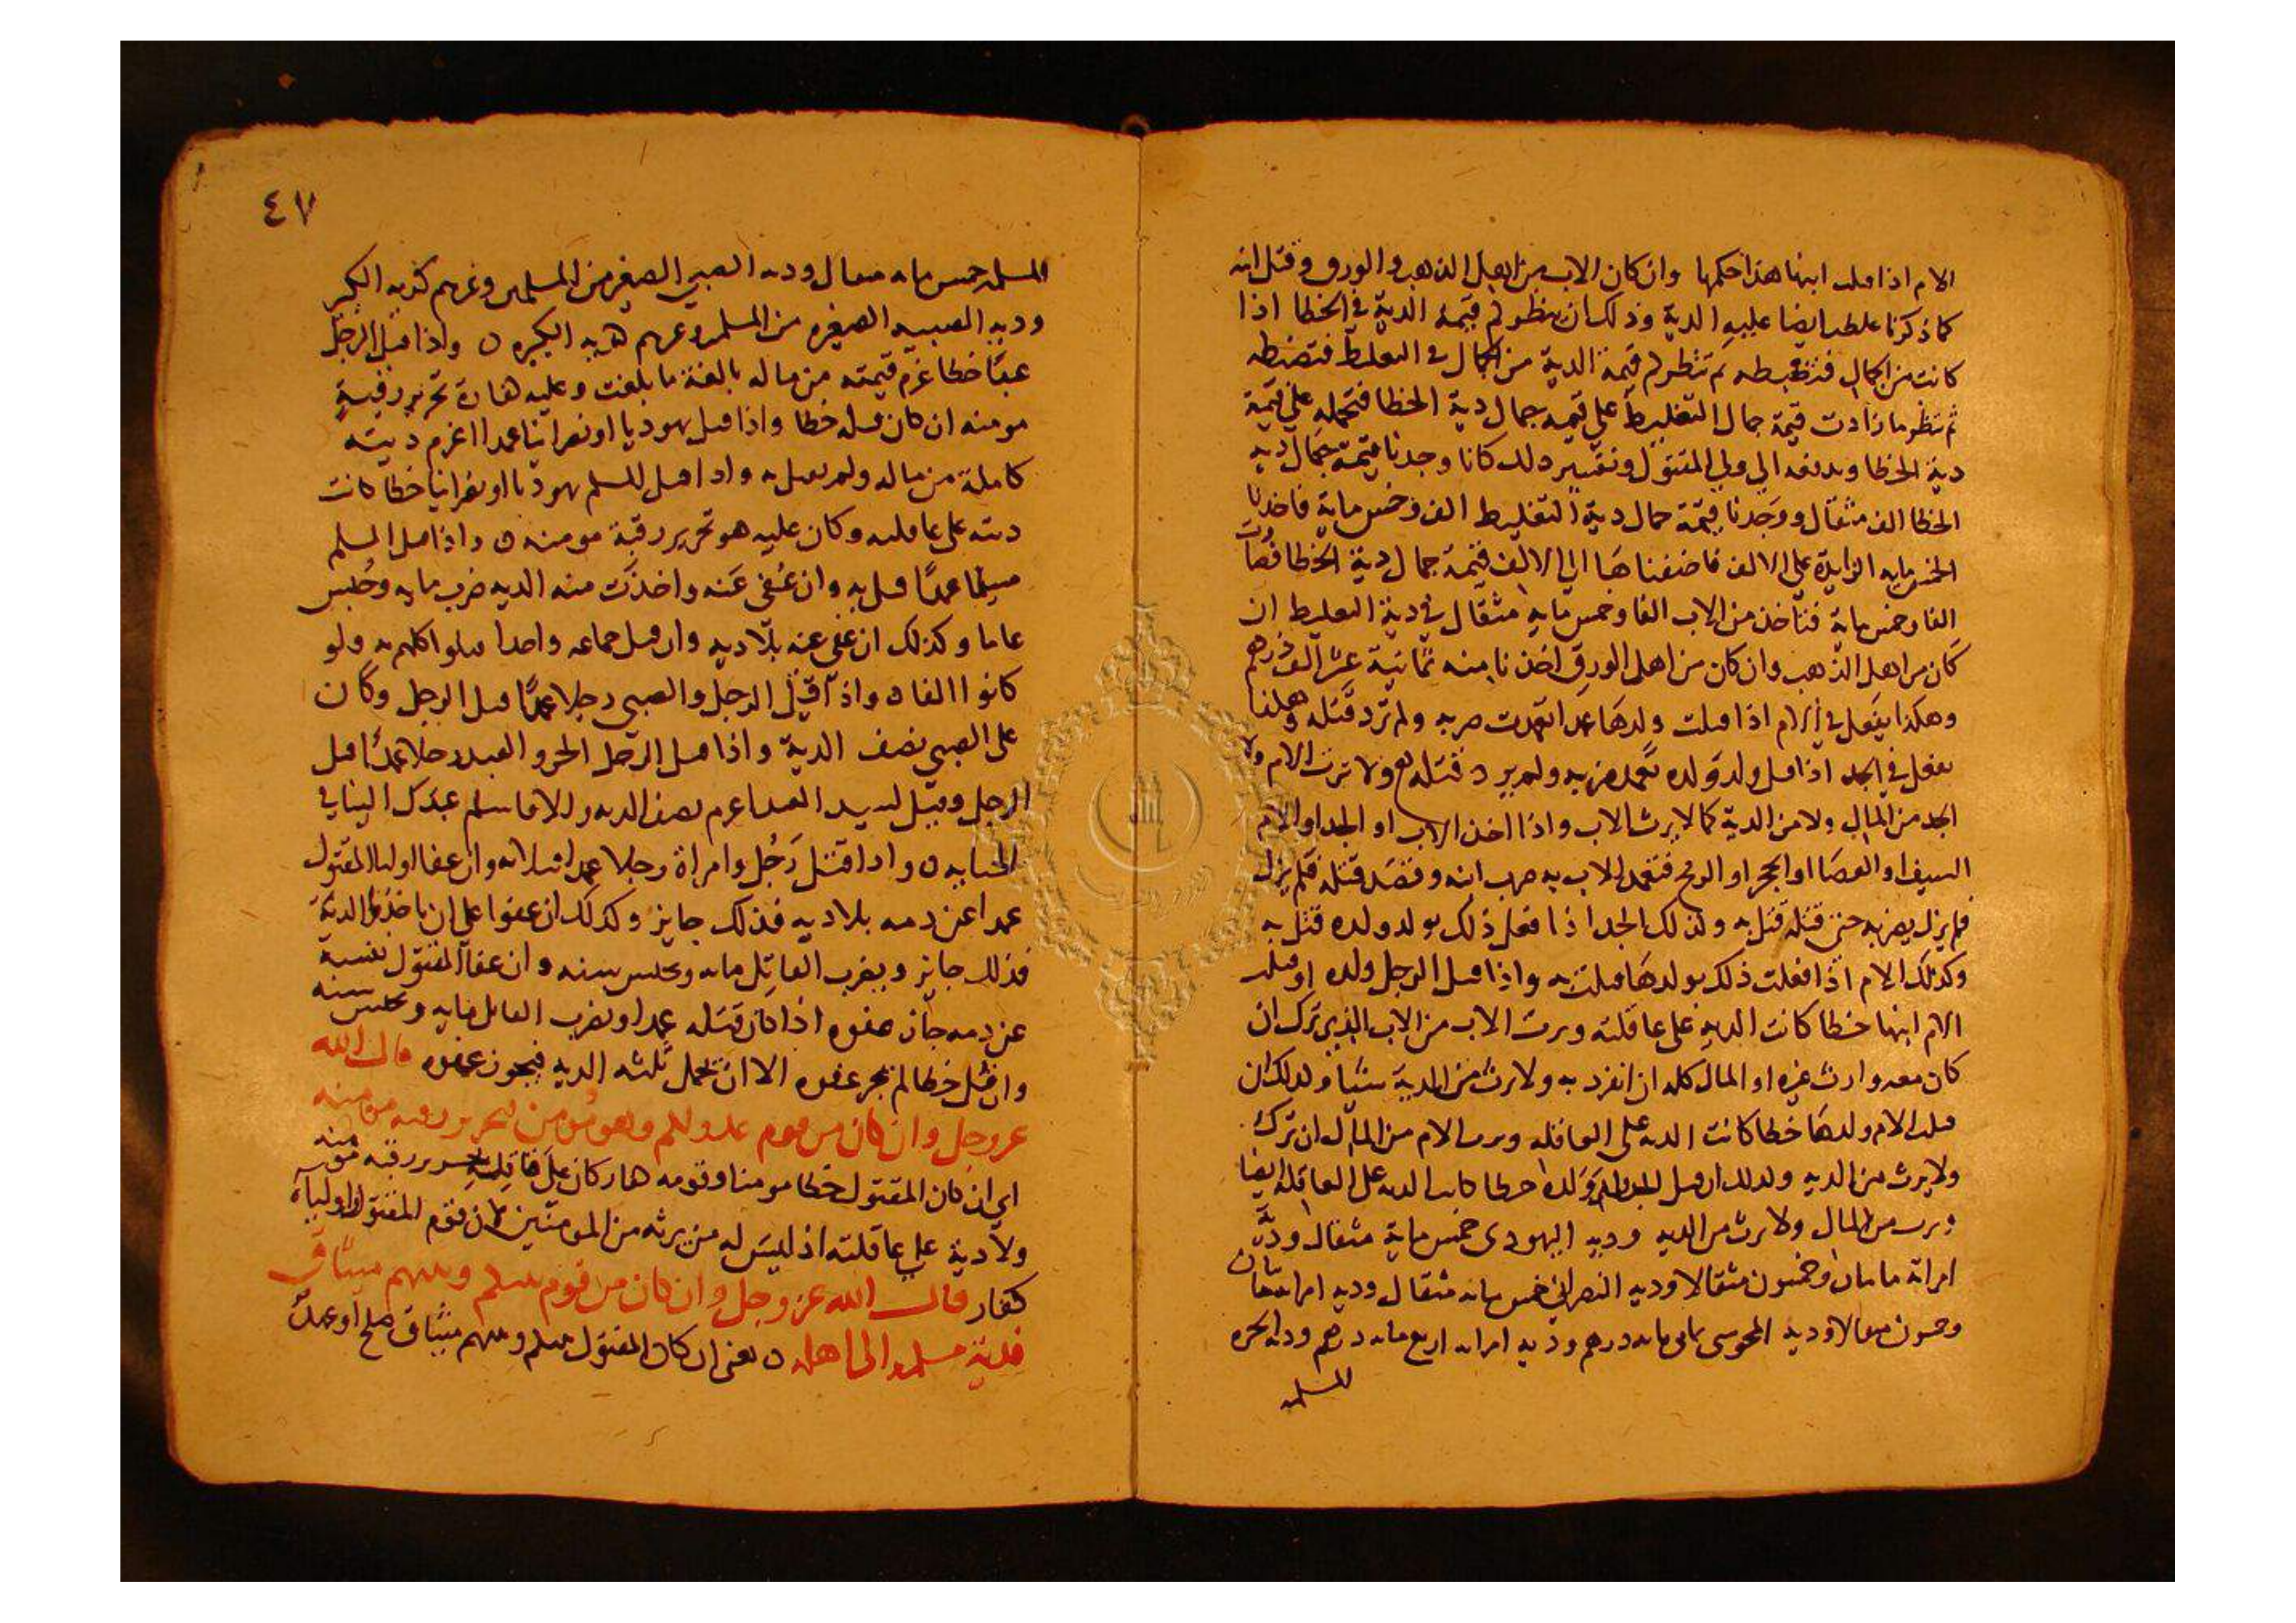 الام اذا قتلت ابنها هذا حكمها وان كان الاب من اهل الذهب والورق وقتل ابنه
كما ذكرنا غلظت ايضا عليه الدية وذلك ان ينظر كم قيمة الدية في الخطا اذا
كانت من الجمال فتضبطه ثم تنظر كم قيمة الدية من الجمال في التغليظ فتضبطه
ثم تنظر ما زادت قيمة جمال التغليظ على قيمة جمال دية الخطا فتحمله على قيمة
دية الخطا ويدفعه الى ولي المقتول وتفسير ذلك كانا وجدنا قيمة جمال دية
الخطا الف مثقال ووجدنا قيمة جمال دية التغليظ الف وخمس ماية فاخذنا
الخمس ماية الزايدة على الالف فاضفناها الى الالف قيمة جمال دية الخطا فصارت
الفا وخمس ماية فناخذ من الاب الفا وخمس ماية مثقال في دية التغليظ ان
كان من اهل الذهب وان كان من اهل الورق اخذنا منه ثمانية عشر الف درهم
وهكذا يفعل في الام اذا قتلت ولدها عمدا تعمدت ضربه ولم ترد قتله وهكذا
يفعل في الجد اذا قتل ولد ولده تعمد ضربه ولم يرد قتله ولا ترث الام ولا
الجد من المال ولا من الدية كما لا يرث الاب واذا اخذ الاب او الجد او الام
السيف او العصا او الحجر او الرمح فتعمد الاب به ضرب ابنه وقصد قتله فلم يزل
فلم يزل يضربه حتى قتله قتل به وكذلك الجد اذا فعل ذلك بولد ولده قتل به
وكذلك الام اذا فعلت ذلك بولدها قتلت به واذا قتل الرجل ولده او قتلت
الام ابنها خطا كانت الدية على عاقلته ويرث الاب من الاب الذي ترك ان
كان معه وارث غيره او المال كله ان انفرد به ولا يرث من الدية شيا وكذلك ان
قتلت الام ولدها خطا كانت الدية على العاقلة وترث الام من المال ان ترك
ولا يرث من الدية وكذلك ان قتل الجد ولد ولده خطا كانت الدية على العاقلة ايضا
ويرث من المال ولا يرث من الدية ودية اليهودي خمس ماية مثقال ودية
امراته مايتان وخمسون مثقالا ودية النصراني خمس ماية مثقال ودية امراته مايتان
وخمسون مثقالا ودية المجوسي ثماني ماية درهم ودية امراته اربع ماية درهم ودية الحرة
المسلمة
٤٧
المسلمة خمس ماية مثقال ودية الصبي الصغير من المسلمين وغيرهم كدية الكبير
ودية الصبية الصغيرة من المسلمين وغيرهم كدية الكبيرة ه واذا قتل الرجل
عبدًا خطا غرم قيمته من ماله بالغة ما بلغت وعليه كفارة تحرير رقبة
مومنة ان كان قتله خطا واذا قتل يهوديا او نصرانيا عمدا اغرم ديته
كاملة من ماله ولم يقتل به واذا قتل المسلم يهوديا او نصرانيا خطا كانت
ديته على عاقلته وكان عليه هو تحرير رقبة مومنة ه واذا قتل المسلم
مسلما عمدًا قتل به وان عُفى عنه واخذت منه الدية ضرب ماية وحُبس
عاما وكذلك ان عفى عنه بلا دية وان قتل جماعة واحدا قتلوا كلهم به ولو
كانوا الفا ه واذا قتل الرجل والصبي رجلا عمدًا قتل الرجل وكان
على الصبي نصف الدية واذا قتل الرجل الحر والعبد رجلا عمدًا قتل
الرجل وقيل لسيد العبد اغرم نصف الدية والا فاسلم عبدك الباقي
الجنايه ه واذا قتل رَجُل وامراة رجلا عمدا قتلا به وان عفا اوليا المقتول
عمدا عن دمه بلا دية فذلك جايز وكذلك ان عفوا على ان ياخذوا الدية
فذلك جايز ويضرب القاتل ماية ويحبس سنة وان عفا المقتول نفسه
عن دمه جاز عفوه اذا كان قتله عمدا ويضرب القاتل ماية ويحبس سنة
وان قتل خطا لم يجز عفوه الا ان يحمل ثلثه الدية فيجوز عفوه قال الله
عز وجل وان كان من قوم عدو لكم وهو مومن فتحرير رقبة مومنة
اي ان كان المقتول خطا مومنا وقومه كفار كان على قاتله تحرير رقبة مومنة
ولا دية على عاقلته اذ ليس له من يرثه من المومنين لان قوم المقتول اولياه
كفار قال الله عز وجل وان كان من قوم بينكم وبينهم ميثاق
فدية مسلمة الى اهله ه يعني ان كان المقتول بينكم وبينهم ميثاق صلح او عهد